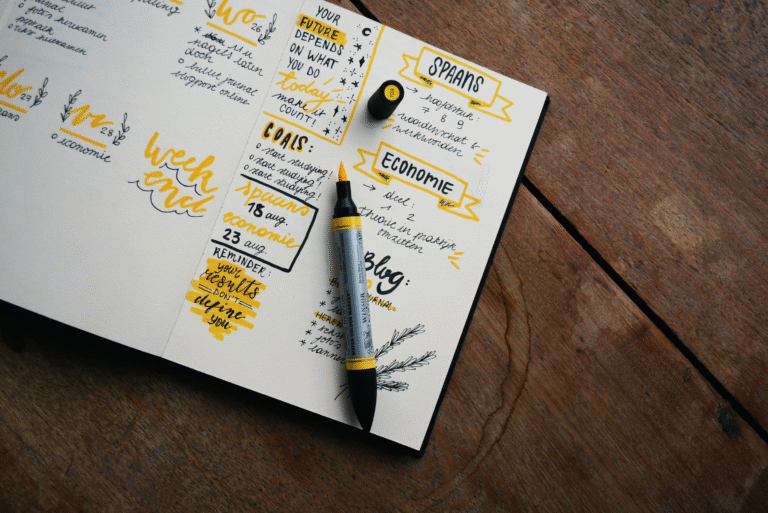 wo 26
nagels laten
doen
o bullet journal
blogpost online
o herexamen
27
28
o economie
week
end
YOUR
FUTURE
DEPENDS
ON WHAT
YOU DO
today
make it
COUNT!
GOALS:
o start studying!
o start studying!
o start studying!
spaans
18 aug.
economie
23 aug.
REMINDER:
your
results
DON'T
define
you
SPAANS
→ hoofdstuk:
7 8 9
woordenschat &
werkwoorden
ECONOMIE
→ deel:
1 2
theorie in praktijk
omzetten
Blog: